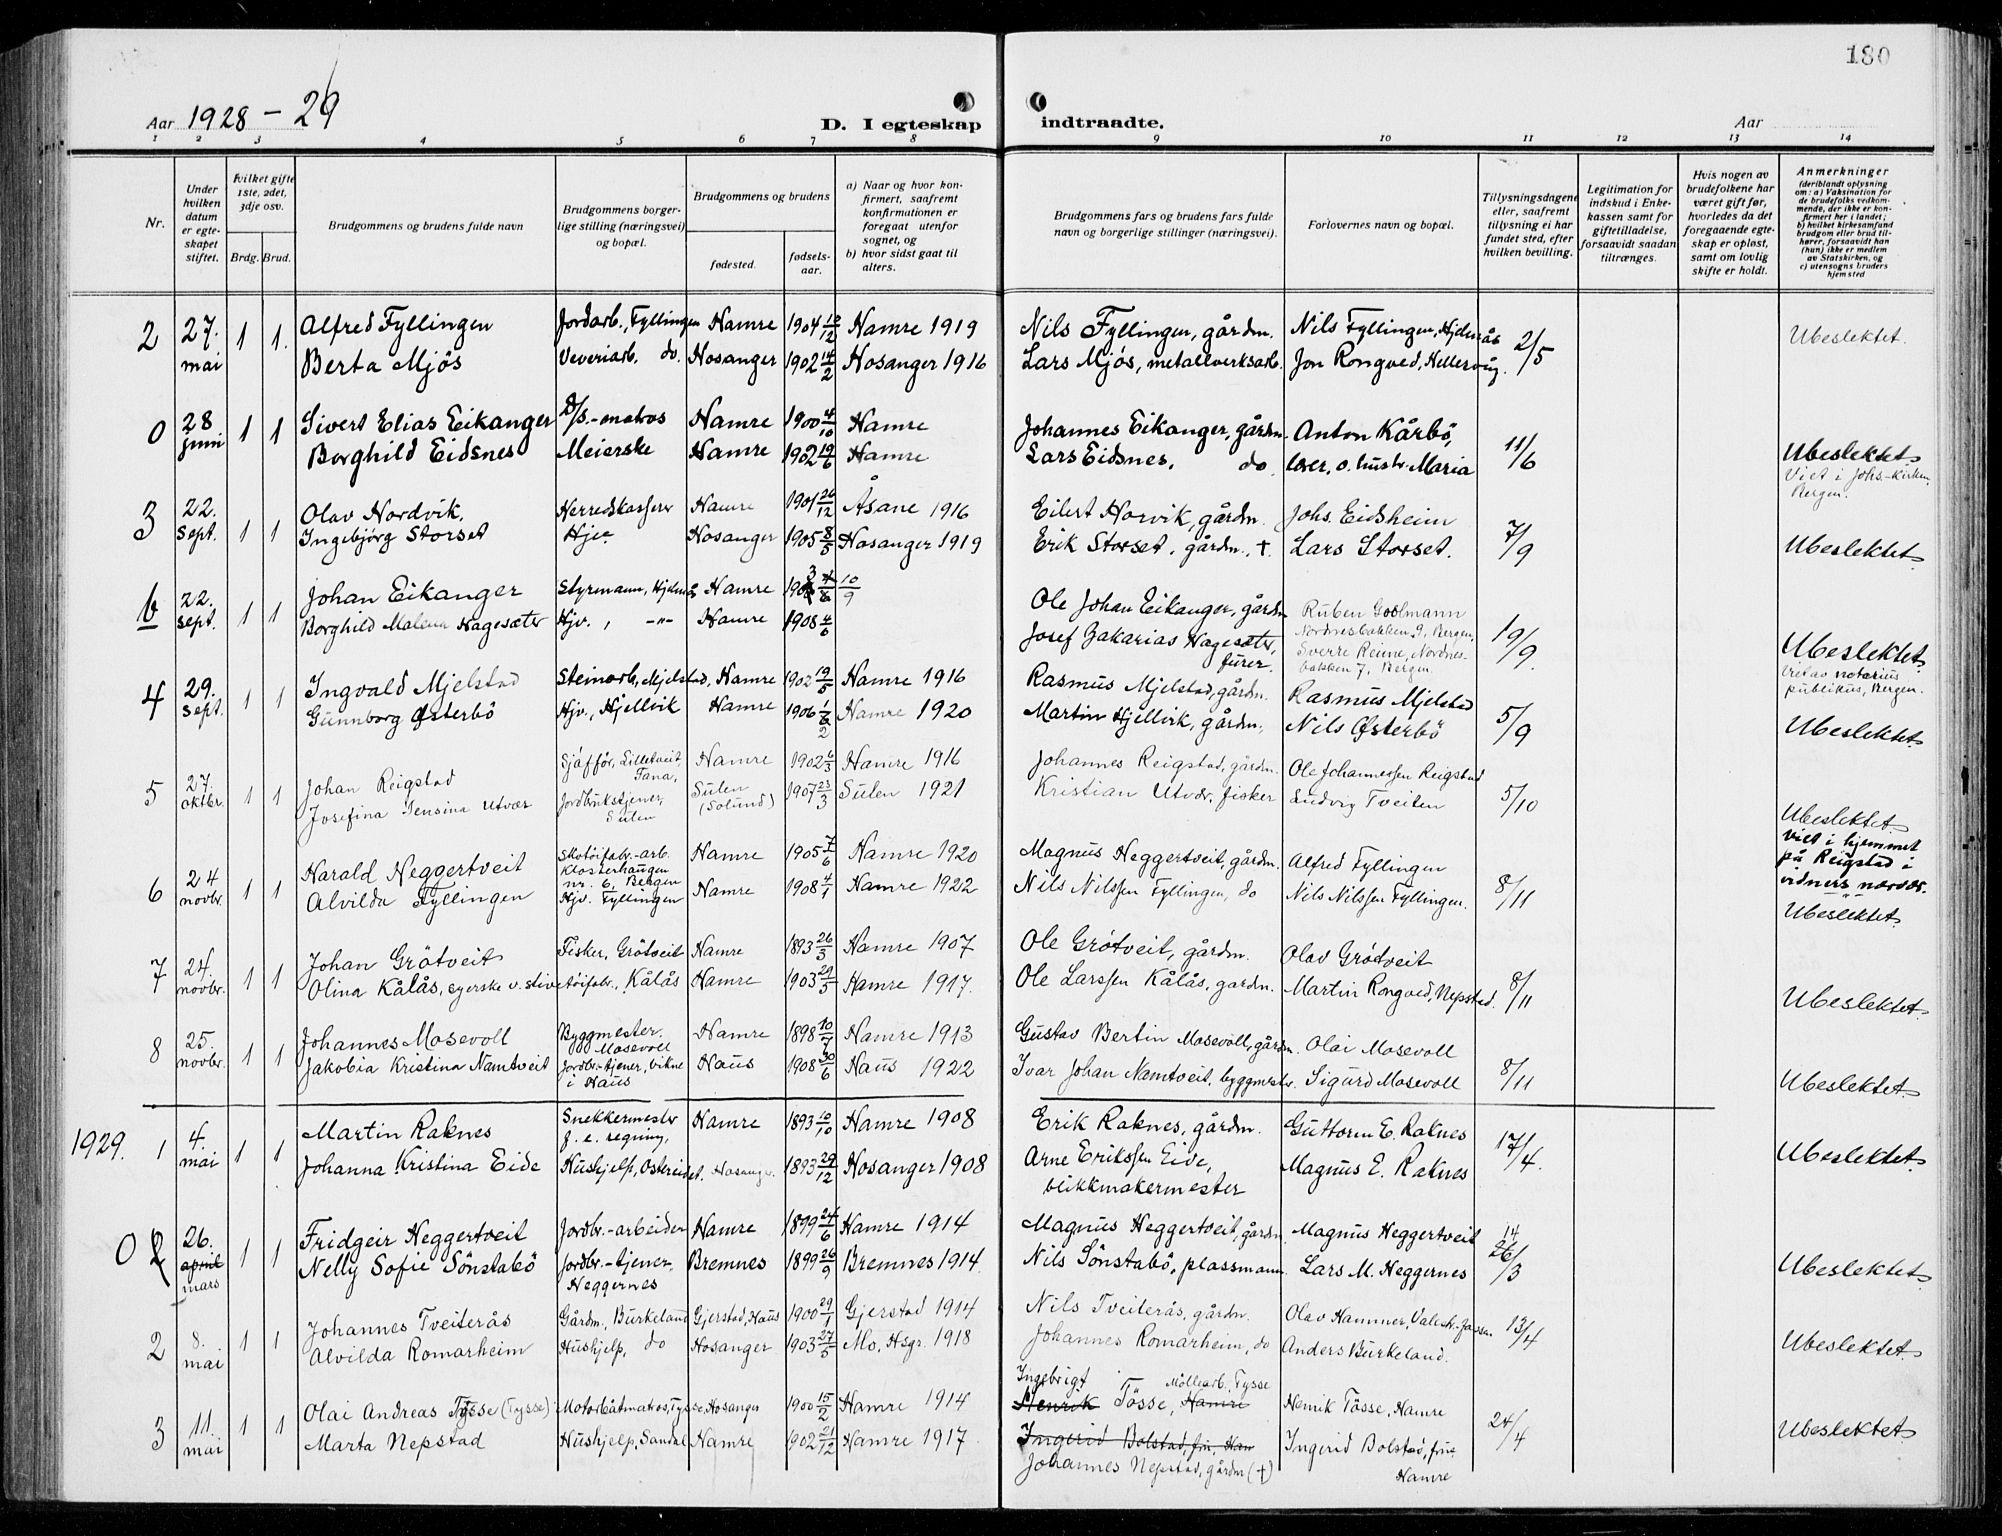 180
Aar 1928 - 29
D. I egteskap indtraadte.
Aar
1 2 3 4 5 6 7 8 9 10 11 12 13 14
Nr.
Under hvilken datum er egteskapet stiftet.
Hvilket gifte 1ste, 2det, 3dje osv.
Brdg. Brud.
Brudgommens og brudens fulde navn
Brudgommens borgerlige stilling (næringsvei) og bopæl.
Brudgommens og brudens
fødested.
fødselsaar.
a) Naar og hvor konfirmert, saafremt konfirmationen er foregaat utenfor sognet, og
b) hvor sidst gaat til alters.
Brudgommens fars og brudens fars fulde navn og borgerlige stillinger (næringsvei).
Forlovernes navn og bopæl.
Tillysningsdagene eller, saafremt tillysning ei har fundet sted, efter hvilken bevilling.
Legitimation for indskud i Enkekassen samt for giftetilladelse, forsaavidt saadan tiltrænges.
Hvis nogen av brudefolkene har været gift før, hvorledes da det foregaaende egteskap er opløst, samt om lovlig skifte er holdt.
Anmerkninger
(deriblandt oplysning om: a) Vaksination for de brudefolks vedkommende, der ikke er konfirmert her i landet; b) hvilket kirkesamfund brudgom eller brud tilhører, forsaavidt han (hun) ikke er medlem av Statskirken, og c) utensogns bruders hjemsted
2 27. mai 1 1. Alfred Fyllingen Jordarb., Fyllingen Hamre 1904 10/12 Hamre 1919 Nils Fyllingen, gårdm. Nils Fyllingen, Hjelmås 2/5 Ubeslektet.
Berta Mjös Veveriarb. do. Hosanger 1902 14/2 Hosanger 1916 Lars Mjös, metallverksarb. Jon Rongved, Hellesvåg.
0 28 juni 1 1 Sivert Elias Eikanger D/s.-matros Hamre 1900 4/10 Hamre Johannes Eikanger, gårdm. Anton Kårbö, 11/6 Ubeslektet.
Borghild Eidsnes Meierske Hamre 1902 19/6 Hamre Lars Eidsnes, do lærer, o. hustr. Maria
Viet i Johs.-kirken, Bergen.
3 22. Sept. 1 1 Olav Nordvik. Herredskasserer Hamre 1901 26/12 Åsane 1916 Eilert Horvik, gårdm. Johs. Eidsheim 7/9 Ubeslektet.
Ingebjørg Storset Hjv. Hosanger 1905 8/5 Hosanger 1919 Erik Storset, gårdm., † Lars Storset.
b 22. sept. 1 1 Johan Eikanger Styrmann, Hjelmås Hamre 1903 10/9 Ole Johan Eikanger, gårdm Ruben Goolmann
Nordnesbakken 9, Bergen, 19/9 Ubeslektet.
Borghild Malena Hagesæter Hjv., -"- Hamre 1908 4/6 Josef Zakarias Hagesæter, furer. Sverre Reime, Nordnesbakken 7, Bergen.
Viet av notarius publikus, Bergen.
4 29. sept. 1 1 Ingvald Mjelstad Steinarb., Mjelstad, Hamre 1902 19/5 Hamre 1916 Rasmus Mjelstad, gårdm. Rasmus Mjelstad 5/9 Ubeslektet.
Gunnborg Østerbö Hjv., Hjellvik Hamre 1906 1/2 Hamre 1920 Martin Hjellvik, gårdm. Nils Østerbö
5 27. oktbr. 1 1 Johan Reigstad Sjåfför, Lilletveit, Fana, Hamre 1902 6/3 Hamre 1916 Johannes Reigstad, gårdm. Ole Johannessen Reigstad 5/10 Ubeslektet.
Josefina Jensina Utvær Jordbrukstjener, Sulen Sulen (Solund) 1907 23/3 Sulen 1921 Kristian Utvær, fisker Ludvig Tveiten
viet i hjemmet på Reigstad i vidners nærvær.
6 24 novbr. 1 1 Harald Heggertveit Skotöifabr.-arb. Klosterhaugen nr. 6, Bergen Hamre 1905 7/6 Hamre 1920 Magnus Heggertveit, gårdm. Alfred Fyllingen 8/11 Ubeslektet.
Alvilda Fyllingen Hjv. Fyllingen Hamre 1908 4/1 Hamre 1922 Nils Nilssen Fyllingen, do Nils Nilssen Fyllingen.
7 24. novbr. 1 1 Johan Grötveit Fisker, Grötveit Hamre 1893 26/3 Hamre 1907 Ole Grötveit, gårdm. Olav Grötveit 8/11 Ubeslektet.
Olina Kålås, syerske v. stivetöifabr., Kålås Hamre 1903 29/5 Hamre 1917. Ole Larssen Kålås, gardm. Martin Rongved, Nepstad.
8 25. novbr. 1 1 Johannes Mosevoll Byggmester. Mosevoll Hamre 1898 10/7 Hamre 1913 Gustav Bertin Mosevoll, gårdm. Olai Mosevoll 8/11 Ubeslektet.
Jakobia Kristina Namtveit Jordbr.-tjener, Vikne i Haus Haus 1908 30/6 Haus 1922 Ivar Johan Namtveit, byggmestr. Sigurd Mosevoll
1929. 1 4. mai 1 1 Martin Raknes Snekkermester f. e. regning, Hamre 1893 10/10 Hamre 1908 Erik Raknes, gårdm. Guttorm E. Raknes 17/4. Ubeslektet.
Johanna Kristina Eide Hushjelp, Ostereidet. Hosanger. 1893 29/12 Hosanger 1908 Arne Erikssen Eide, blikkmakermester Magnus E. Raknes
0 2 26. april mars 1 1 Fridgeir Heggertveit Jordbr.-arbeider Hamre 1899 24/6 Hamre 1914 Magnus Heggertveit, gårdm. Magnus Heggertveit 14 26/3 Ubeslektet.
Nelly Sofie Sönstabö Jordbr.-tjener, Heggernes Bremnes 1899 26/9 Bremnes 1914. Nils Sönstabö, plassmann. Lars M. Heggernes
2 8. mai 1 1 Johannes Tveiterås Gårdm., Burkeland Gjerstad, Haus 1900 29/1 Gjerstad 1914 Nils Tveiterås, gårdm. Olav Hammer, Valestr.-fossen. 13/4 Ubeslektet.
Alvilda Romarheim Hushjelp, do Hosanger 1903 27/5 Mo, Hsgr. 1918 Johannes Romarheim, do Anders Burkeland.
3 11. mai 1 1 Olai Andreas Tysse (Tysse) Motorbåtmatros, Tysse, Hosanger 1900 15/2 Hamre 1914 Ingebrigt Möllearb., Tysse
Henrik Tösse, Hamre Henrik Tösse, Hamre 24/4 Ubeslektet.
Marta Nepstad Hushjelp, Sandal Hamre 1902 21/12 Hamre 1917. Ingerid Bolstad, frue, Ham Ingerid Bolstad, frue Hamre
Johannes Nepstad, gårdm (†)